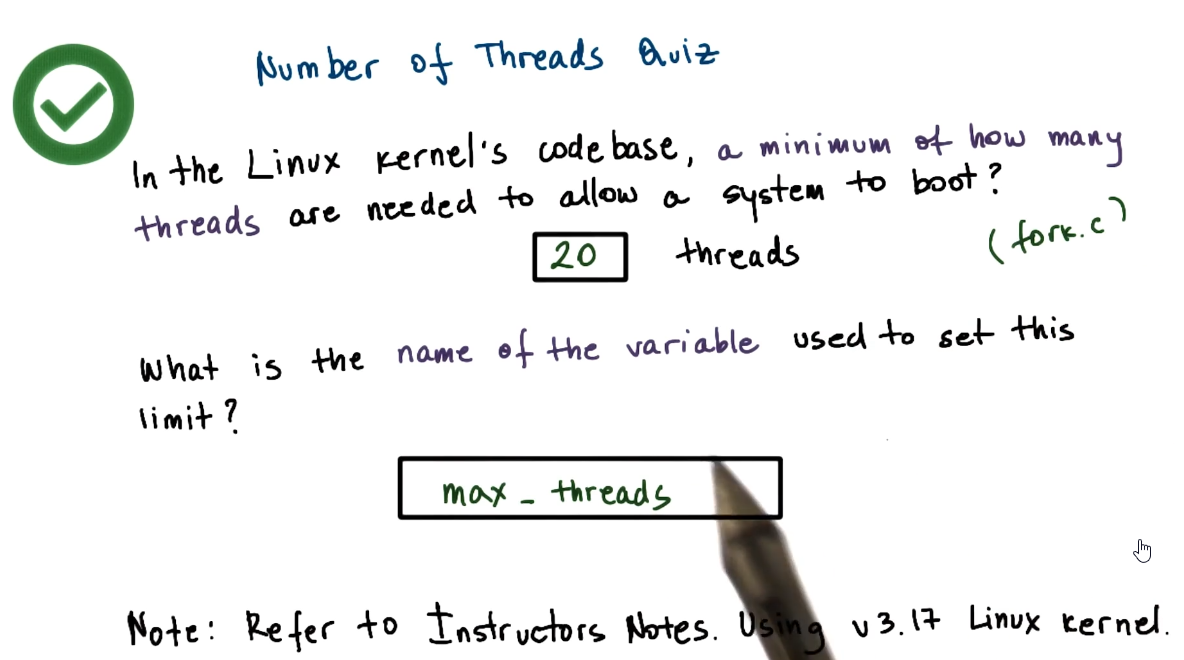 Number of Threads Quiz
In the Linux kernel's codebase, a minimum of how many
threads are needed to allow a system to boot?
(fork.c)
20 threads
What is the name of the variable used to set this
limit?
max_threads
Note: Refer to Instructors Notes. Using v3.17 Linux kernel.